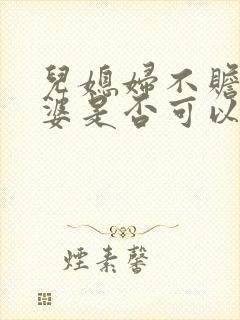 兒媳婦不贍
婆是否可以
煙素馨